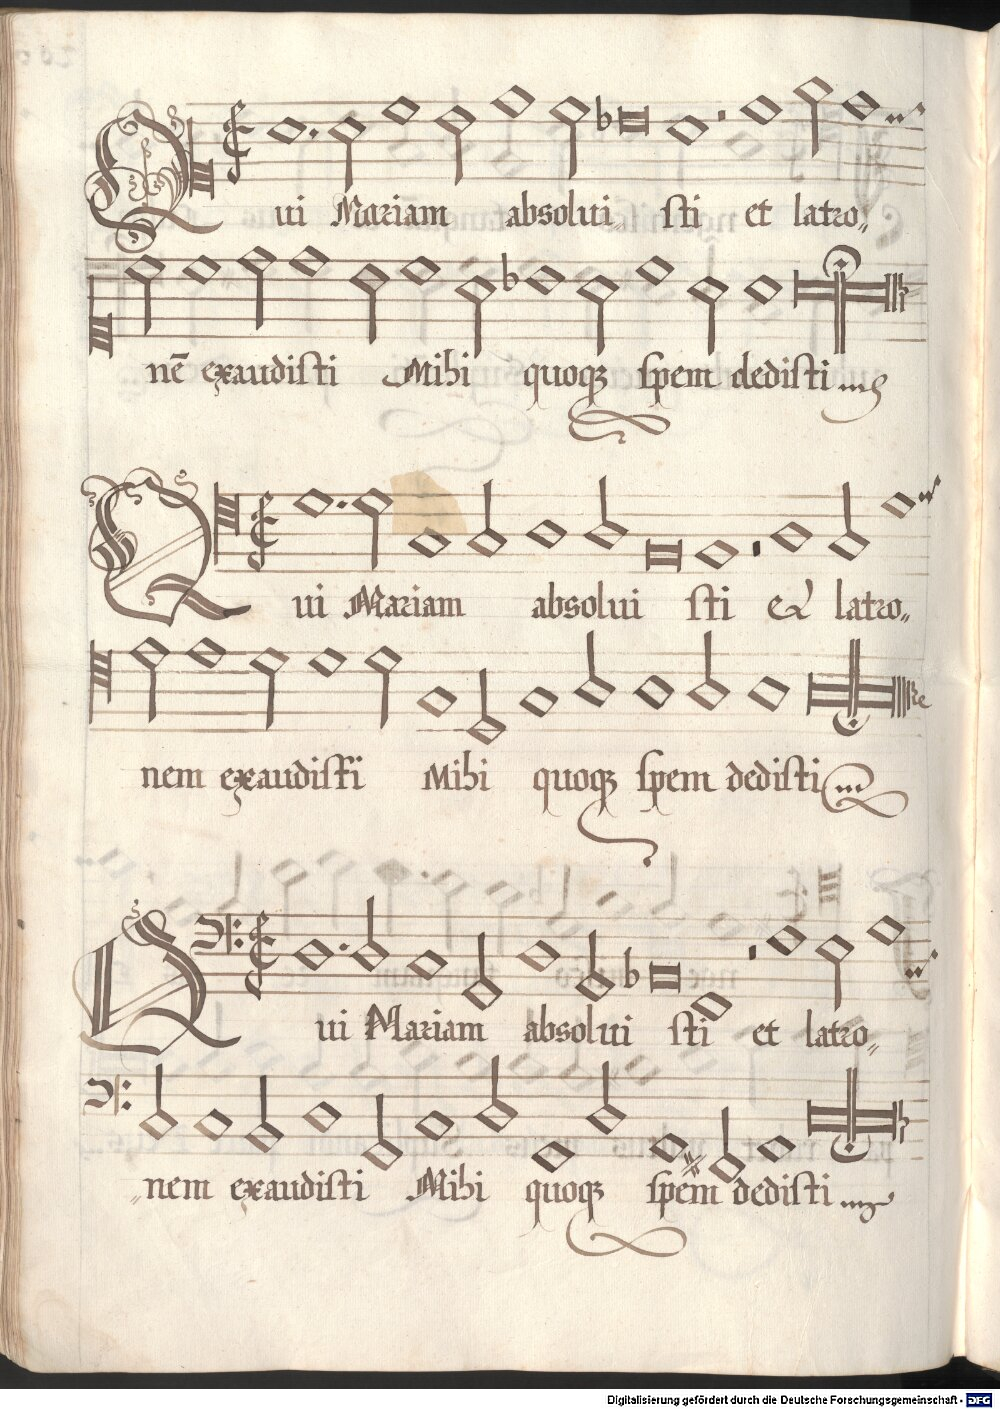 Qui Mariam absolui sti et latro„
nē exaudisti Mihi quoqz spem dedisti
Qui Mariam absolui sti et latro„
nem exaudisti Mihi quoqz spem dedisti
Qui Mariam absolui sti et latro„
nem exaudisti Mihi quoqz spem dedisti
Digitalisierung gefördert durch die Deutsche Forschungsgemeinschaft - DFG